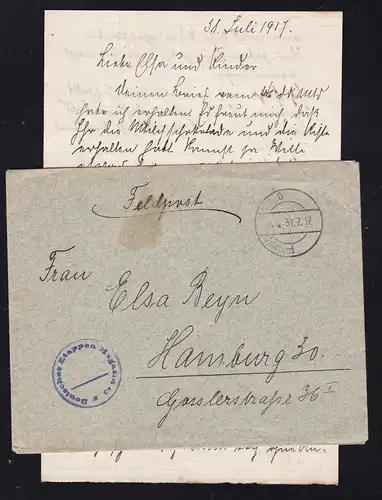 31. Juli 1917.
Liebe Elsa und Kinder
Deinen Brief vom
habe ich erhalten Es freut mich, daß
Ihr die Milchschokolade und die Kiste
erhalten habt
Feldpost
31.7.17
Feldpost
Frau Elsa Beyn
Hamburg 30.
Gosslerstraße 36 I
Deutsches Etappen Magazin